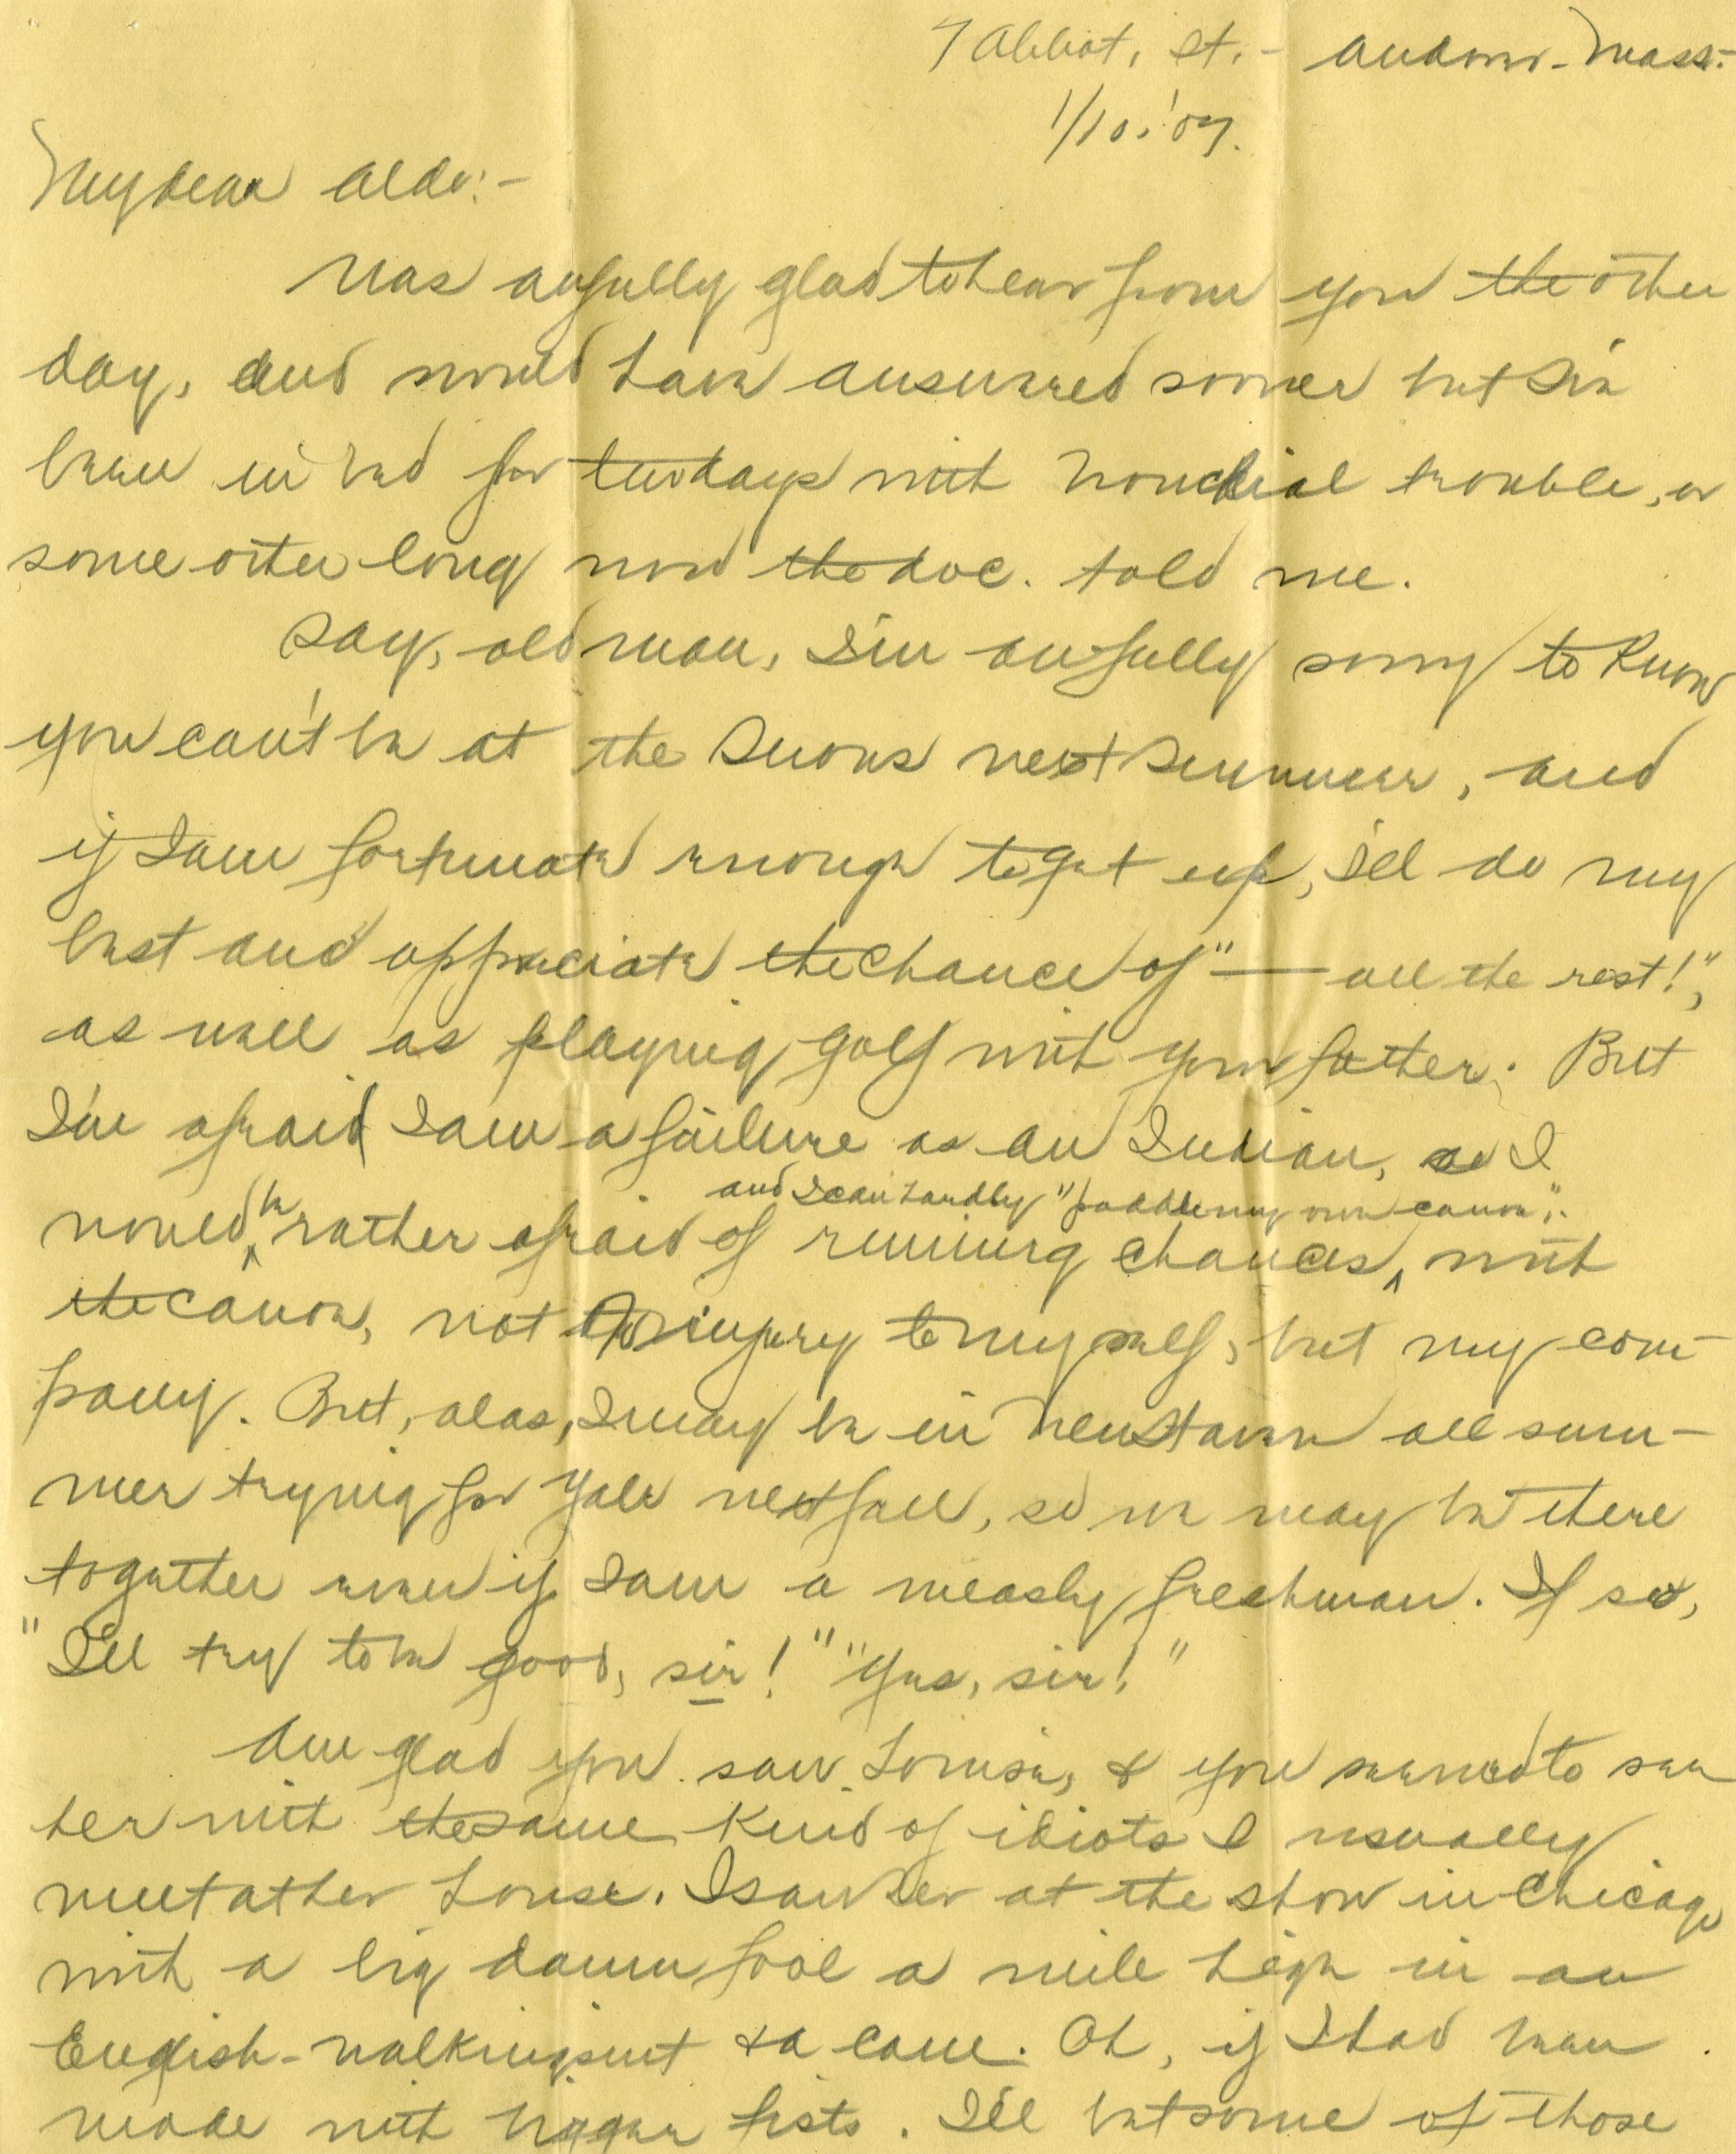 7 Abbot, St. - Andover - Mass. -
1/10, '07.
My dear Aldo: -
Was awfully glad to hear from you the other
day, and would have answered sooner but I've
been in bed for two days with bronchial trouble, or
some other long word the doc. told me.
Say, old man, I'm awfully sorry to know
you can't be at the Snows next Summer, and
if I am fortunate enough to get up, I'll do my
best and appreciate the chance of "— all the rest!",
as well as playing golf with your father. But
I'm afraid I am a failure as an Indian, so I
and I can hardly "paddle my own canoe".
would be rather afraid of running chances, with
the canoe, not to injury to myself, but my com-
pany. But, alas, I may be in New Haven all sum-
mer trying for Yale next fall, so we may be there
together even if I am a measly freshman. If so,
"I'll try to be good, sir!" "Yes, sir!"
Am glad you saw Louise, & you seemed to see
her with the same kind of idiots I usually
meet at her house. I saw her at the show in Chicago
with a big damn fool a mile high in an
English-walking suit & a cane. Oh, if I had been
made with bigger fists. I'll bet some of those